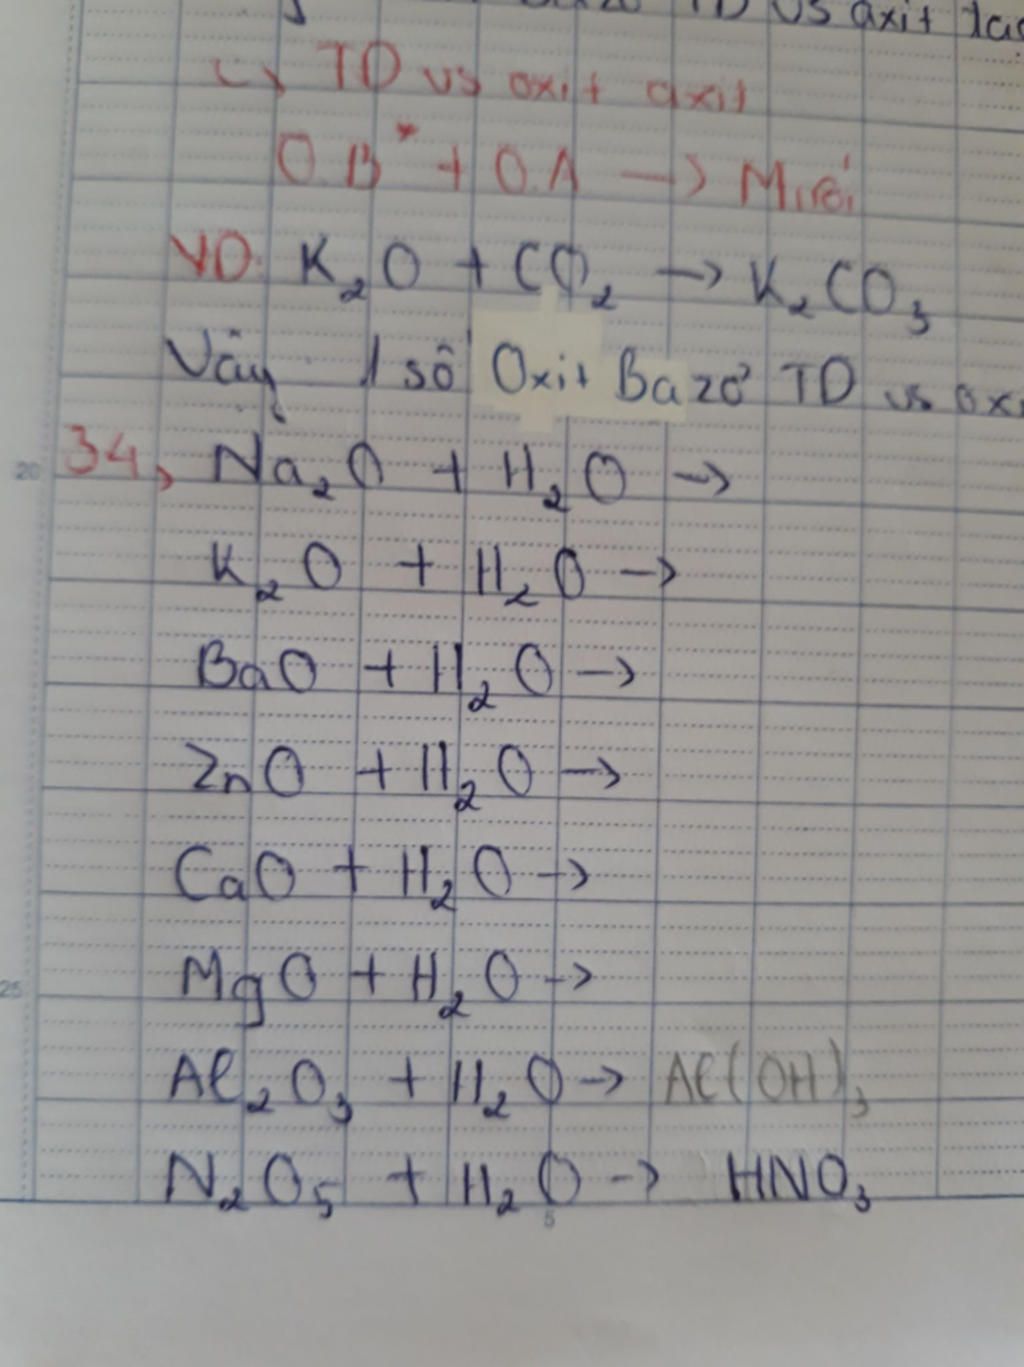 vs axit
TD vs oxit axit
O.B* + O.A → Muối
VD: K₂O + CO₂ → K₂CO₃
Vậy 1 số Oxit Bazơ TD vs
34, Na₂O + H₂O →
20
K₂O + H₂O →
BaO + H₂O →
ZnO + H₂O →
CaO + H₂O →
MgO + H₂O →
25
Al₂O₃ + H₂O → Al(OH)₃
N₂O₅ + H₂O → HNO₃
5